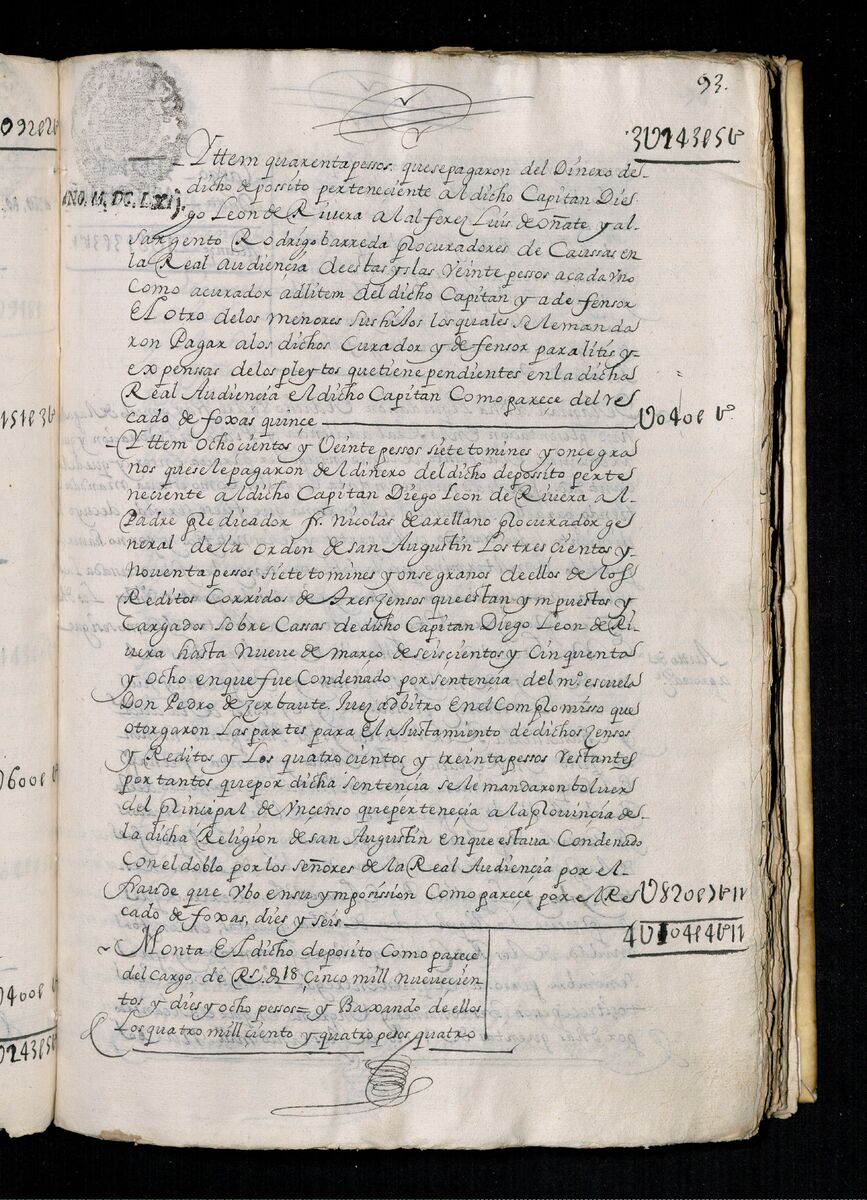 93.
3U243e5U
Yttem quarenta pessos que se pagaron del Dinero de-
dicho deposito perteneciente al dicho Capitan Die-
ANO. M. DC. LXij.
go Leon de Rivera al alferez Luis de oñate y al-
sargento Rodrigo barreda procuradores de Caussas en
la Real Audiencia de estas yslas Veinte pessos a cada Vno
Como a curador adlitem del dicho Capitan y a defensor
El otro de los menores sus hijos los quales se le manda
ron Pagar a los dichos Curador y defensor para litis y-
expenssas de los pleytos que tiene pendientes en la dicha
Real Audiencia el dicho Capitan Como parece del re
cado de foxas quince
U040e U
Yttem ochocientos y Veinte pessos siete tomines y once gra
nos que se le pagaron del dinero del dicho deposito perte
neciente al dicho Capitan Diego Leon de Rivera al-
Padre predicador fr. Nicolas de arellano procurador ge
neral de la orden de san Augustin Los trescientos y-
Noventa pessos siete tomines y onse granos de ellos de los
Reditos Corridos de tres zensos que estan ympuestos y
Cargados sobre Cassas de dicho Capitan Diego Leon de Ri
uera hasta nueve de março de seiscientos y Cinquenta
y ocho en que fue Condenado por sentencia del mº. escuela
Don Pedro de zerbaute. Juez adbitro en el Compromisso que
otorgaron Las partes para el Ajustamiento de dichos zensos
y Reditos y Los quatrocientos y treinta pessos restantes
por tantos que por dicha sentencia se le mandaron boluer
del principal de Vn censo que perteneçia a la prouincia de-
la dicha Religion de san Augustin en que estaua Condenado
Con el doblo por los señores de la Real Audiencia por el-
fraude que Vbo en su ympossission Como parece por el Re
U820e7U11
cado de foxas, dies y seis
4U104e4U11
Monta El dicho deposito Como parece
del cargo de 18 Cinco mill nueuecien
tos y dies y ocho pessos = y Baxando de ellos
Los quatro mill ciento y quatro pesos quatro